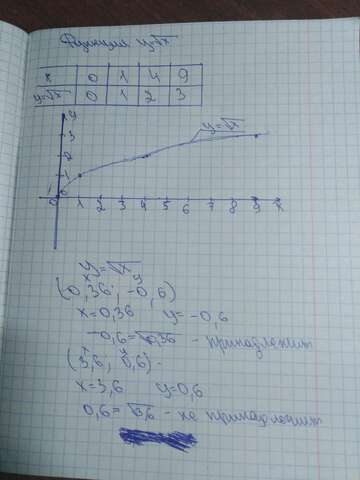 Функция y=√x
x 0 1 4 9
y=√x 0 1 2 3
y
3
y=√x
2
1
0 1 2 3 4 5 6 7 8 9 x
y=√x
x y
(0,36; -0,6)
x=0,36 y=-0,6
-0,6=√0,36 - принадлежит
x y
(3,6; 0,6) -
x=3,6 y=0,6
0,6=√3,6 - не принадлежит